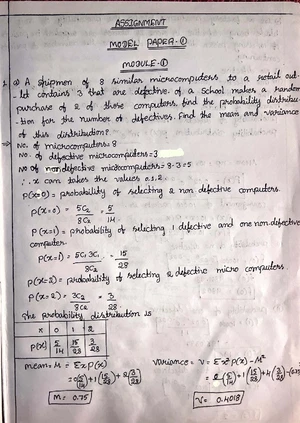 ASSIGNMENT
MODEL PAPER-①
MODULE-①
1. a) A shipmen of 8 similar microcomputers to a retail out-
let contains 3 that are defective. of a School makes a random
purchase of 2 of those computers. find the probability distribu
-tion for the number of defectives. Find the mean and variance
of this distribution?
⇒ No. of microcomputers: 8
No. of defective microcomputers=3
No of non defective microcomputers= 8-3=5
∴ x can takes the values 0,1,2.
P(x=0) = probability of selecting 2 non defective computers.
P(x=0) = 5C₂/8C₂ = 5/14
P(x=1) = probability of selecting 1 defective and one non defective
computer.
P(x=1) = 5C₁ 3C₁/8C₂ = 15/28
P(x=2) = probability of selecting 2 defective micro computers.
P(x=2) = 3C₂/8C₂ = 3/28
The probability distribution is
x 0 1 2
P(x) 5/14 15/28 3/28
mean=M = Σx P(x) variance = V = Σx² P(x) - M²
=0(5/14)+1(15/28)+2(3/28)
M= 0.75 V= 0.4018